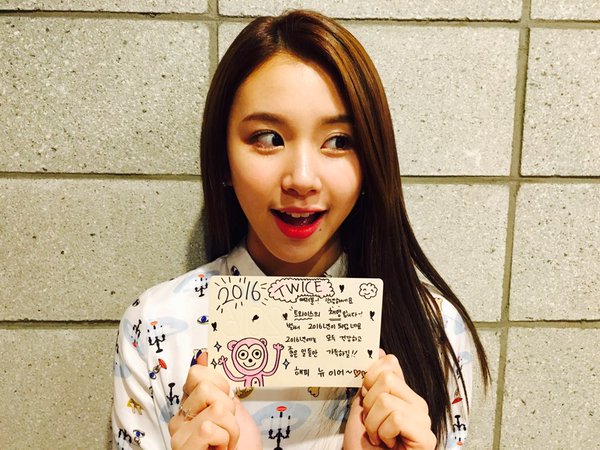 2016 TWICE
여러분~! 안녕하세요
트와이스의 채영입니다~!
벌써 2016년이 되었네요
2016년에는 모두 건강하고
좋은 일들만 가득하길!!
해피 뉴 이어~♡♡